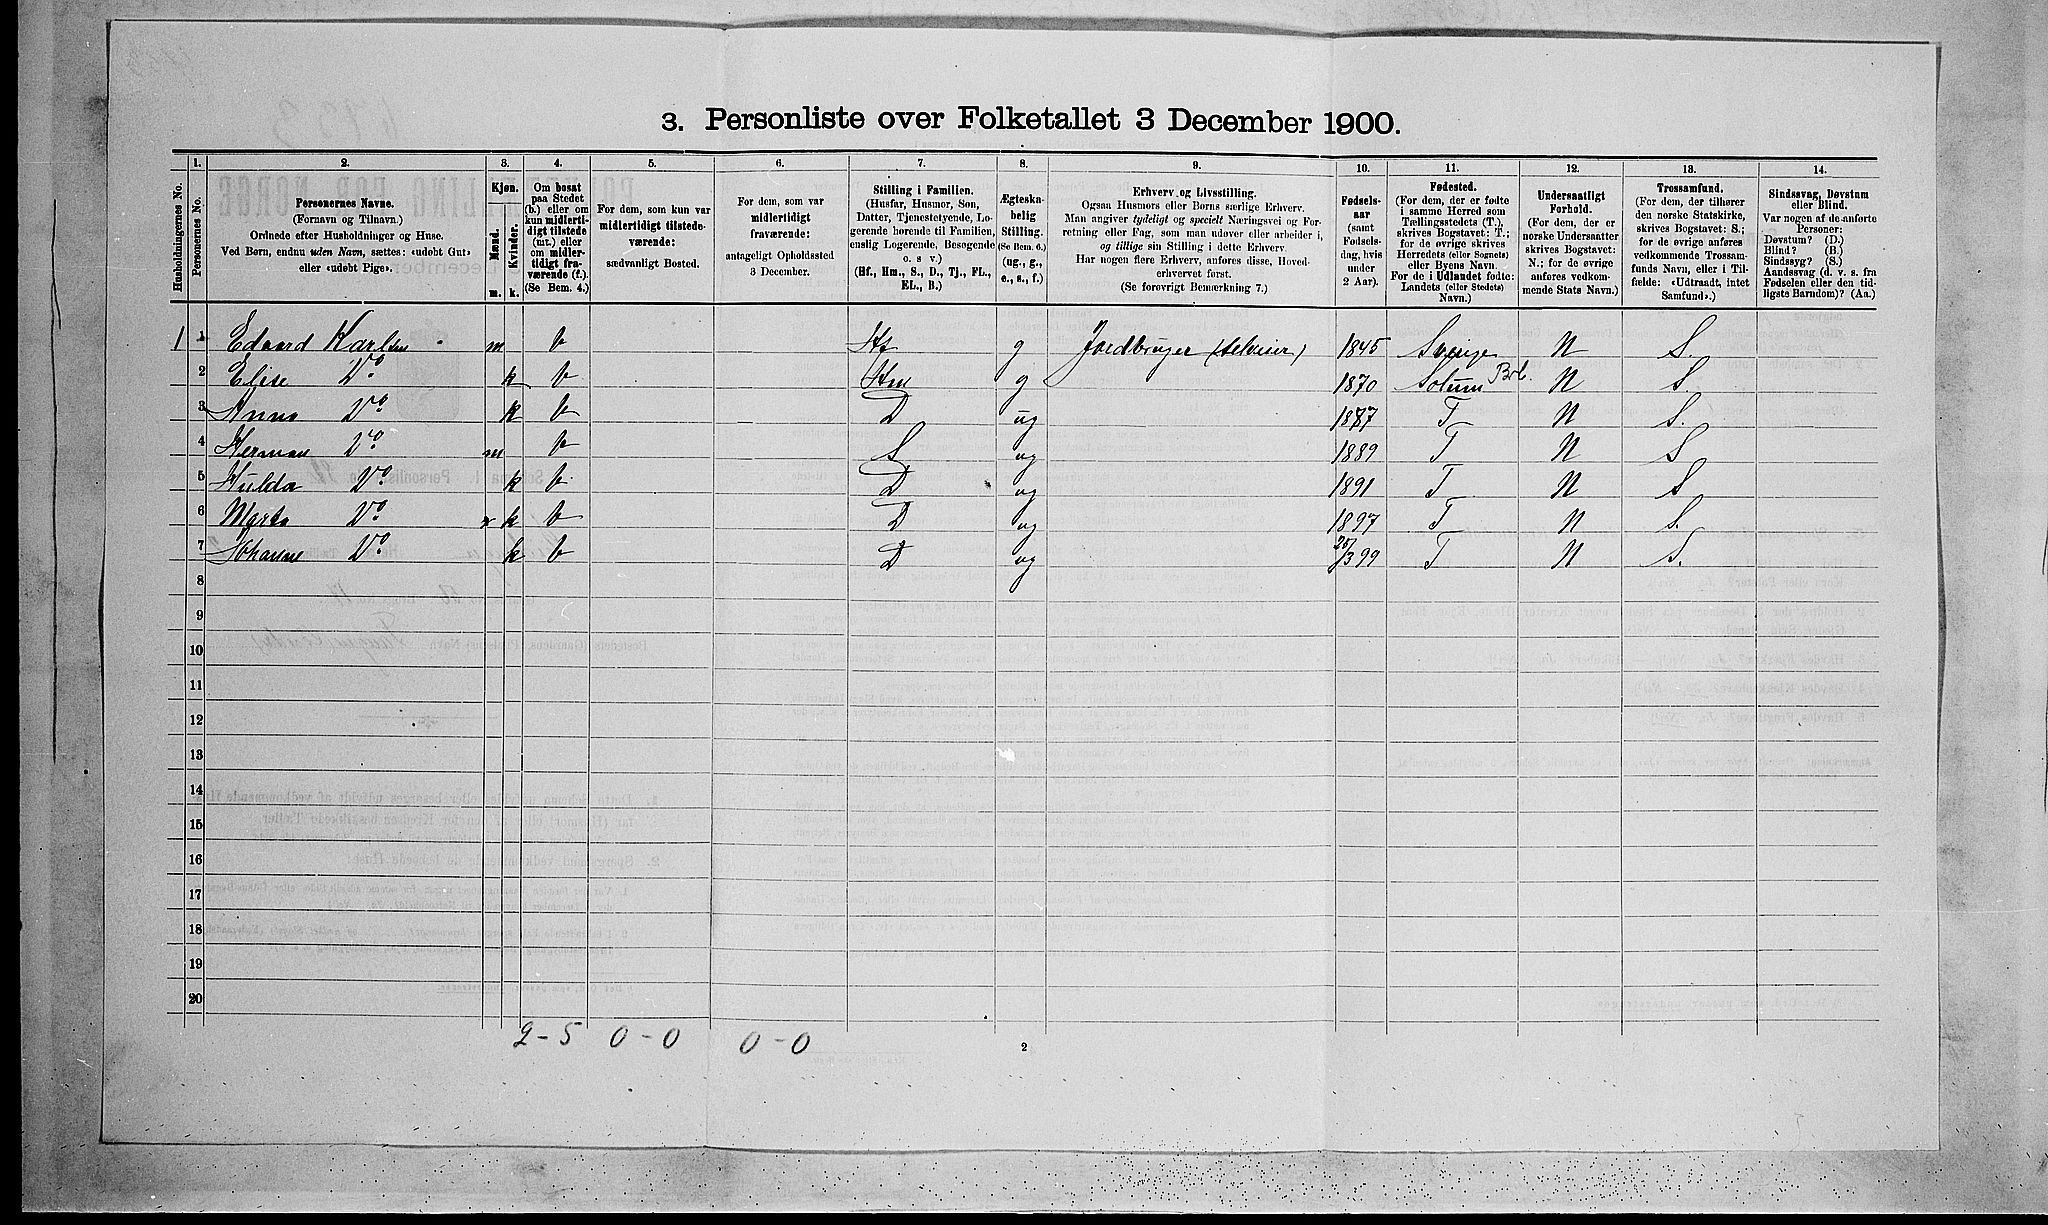 3. Personliste over Folketallet 3 December 1900.
Husholdningernes No.
1.
Personernes No.
2.
Personernes Navne.
(Fornavn og Tilnavn.)
Ordnede efter Husholdninger og Huse.
Ved Børn, endnu uden Navn, sættes: «udøbt Gut»
eller «udøbt Pige».
3.
Kjøn.
Mænd.
Kvinder.
m. k.
4.
Om bosat
paa Stedet
(b.) eller om
kun midlerti-
digt tilstede
(mt.) eller
om midler-
tidigt fra-
værende (f.)
(Se Bem. 4.)
5.
For dem, som kun var
midlertidigt tilstede-
værende:
sædvanligt Bosted.
6.
For dem, som var
midlertidigt
fraværende:
antageligt Opholdssted
3 December.
7.
Stilling i Familien.
(Husfar, Husmor, Søn,
Datter, Tjenestetyende, Lo-
gerende hørende til Familien,
enslig Logerende, Besøgende
o. s. v.)
(Hf., Hm., S., D., Tj., FL.,
EL., B.)
8.
Ægteska-
belig
Stilling.
(Se Bem. 6.)
(ug., g.,
e., s., f.)
9.
Erhverv og Livsstilling.
Ogsaa Husmors eller Børns særlige Erhverv.
Man angiver tydeligt og specielt Næringsvei og For-
retning eller Fag, som man udøver eller arbeider i,
og tillige sin Stilling i dette Erhverv.
Har nogen flere Erhverv, anføres disse, Hoved-
erhvervet først.
(Se forøvrigt Bemærkning 7.)
10.
Fødsels-
aar
(samt
Fødsels-
dag, hvis
under
2 Aar).
11.
Fødested.
(For dem, der er fødte
i samme Herred som
Tællingsstedets (T.),
skrives Bogstavet: T.;
for de øvrige skrives
Herredets (eller Sognets)
eller Byens Navn.
For de i Udlandet fødte:
Landets (eller Stedets)
Navn.)
12.
Undersaatligt
Forhold.
(For dem, der er
norske Undersaatter
skrives Bogstavet:
N.; for de øvrige
anføres vedkom-
mende Stats Navn.)
13.
Trossamfund.
(For dem, der tilhører
den norske Statskirke,
skrives Bogstavet: S.;
for de øvrige anføres
vedkommende Trossam-
funds Navn, eller i Til-
fælde: «Udtraadt, intet
Samfund».)
14.
Sindssvag, Døvstum
eller Blind.
Var nogen af de anførte
Personer:
Døvstum? (D.)
Blind? (B.)
Sindssyg? (S.)
Aandssvag (d. v. s. fra
Fødselen eller den tid-
ligste Barndom)? (Aa.)
1 1 Edvard Karlsen m b Hf g Jordbruger (selveier) 1845 Sverige N S.
2 Elise Do k b Hm g 1870 Solum Brb. N S
3 Anna Do k b D ug 1877 T N S.
4 Herman Do m b S ug 1889 T N S
5 Hulda Do k b D ug 1891 T N S
6 Marta Do k b D ug 1897 T N S.
7 Johanne Do k b D ug 20/3 99 T N S.
8
9
10
11
12
13
14
15
16
17
18
19
20
2-5 0-0 0-0
2